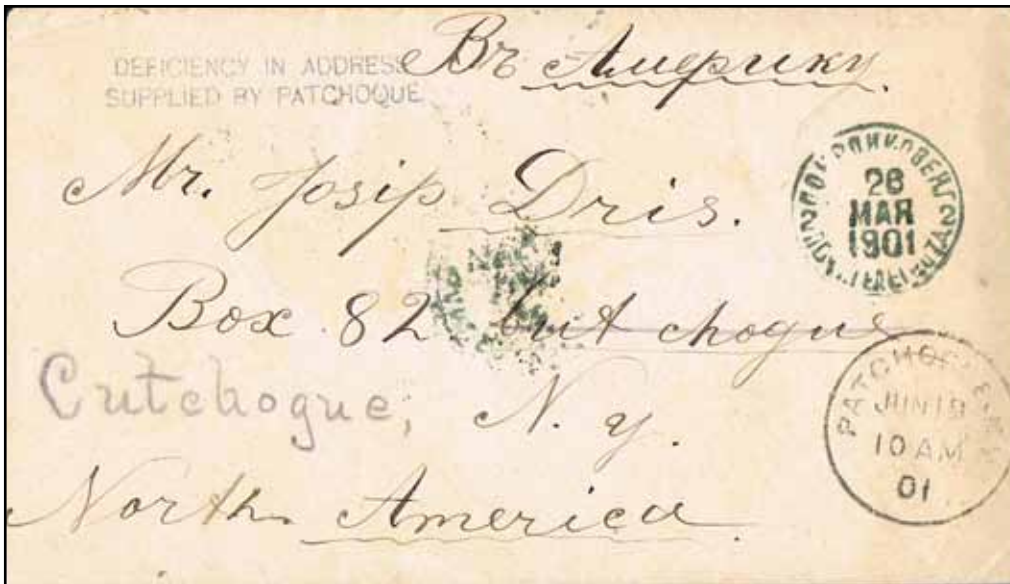 DEFICIENCY IN ADDRESS
SUPPLIED BY PATCHOQUE
Въ Америку.
Mr. Josip Dris.
Box 82 but chogue
Cutchogue, N. y.
North America
26
МАЯ
1901
2
2
JUN 18
10 AM
01